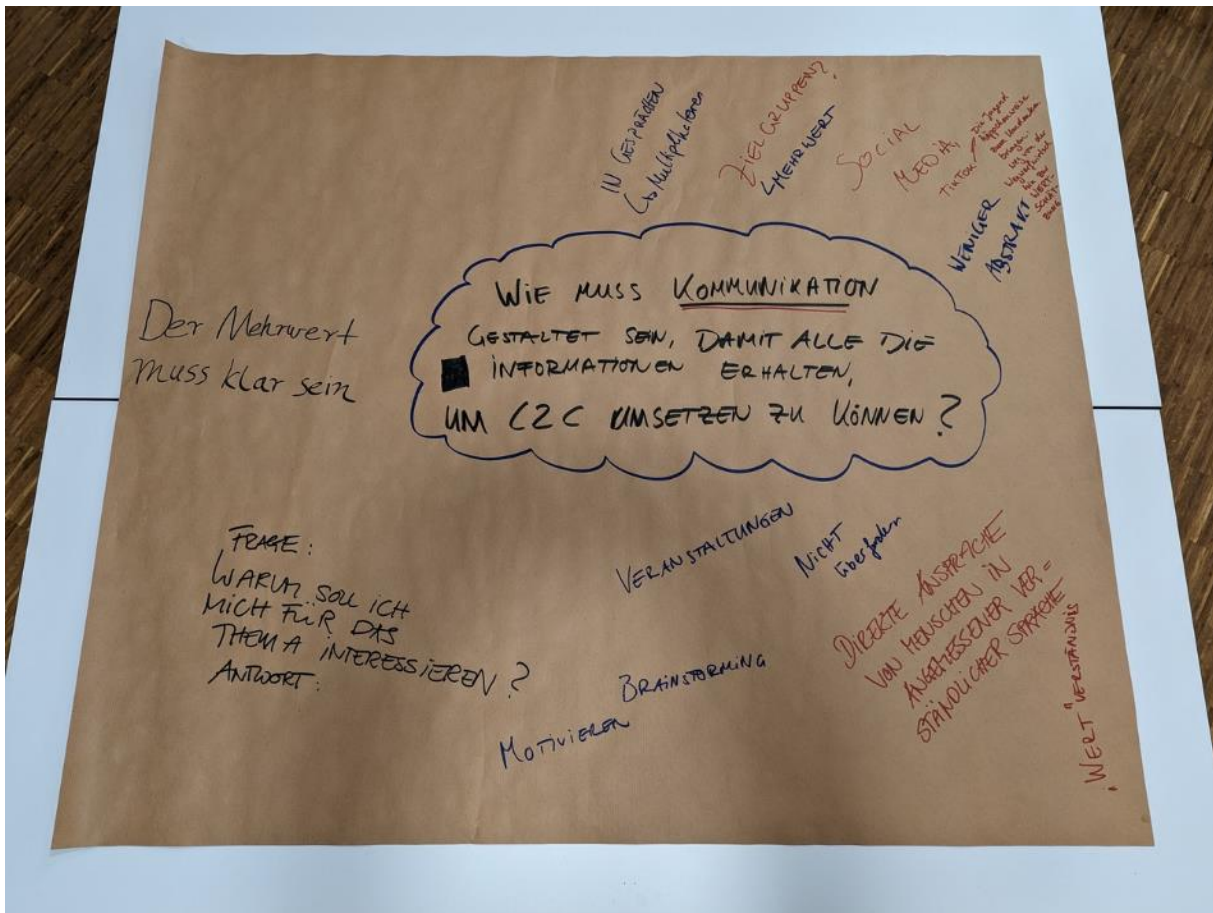 IN GESPRÄCHEN
↳ Multiplikatoren
ZIELGRUPPEN?
↳ MEHRWERT
SOCIAL
MEDIA,
TIKTOK
Die Jugend
häppchenweise
zum Umdenken
bringen.
weg von der
Wegwerf
hin zur
WERT-
SCHÄT-
ZUNG
WENIGER
ABSTRAKT
WIE MUSS KOMMUNIKATION
GESTALTET SEIN, DAMIT ALLE DIE
INFORMATIONEN ERHALTEN,
UM C2C UMSETZEN ZU KÖNNEN?
Der Mehrwert
muss klar sein
FRAGE:
WARUM SOLL ICH
MICH FÜR DAS
THEMA INTERESSIEREN?
ANTWORT:
VERANSTALTUNGEN
NICHT
überfordern
BRAINSTORMING
MOTIVIEREN
DIREKTE ANSPRACHE
VON MENSCHEN IN
ANGEMESSENER VER=
STÄNDLICHER SPRACHE
"WERT"VERSTÄNDNIS